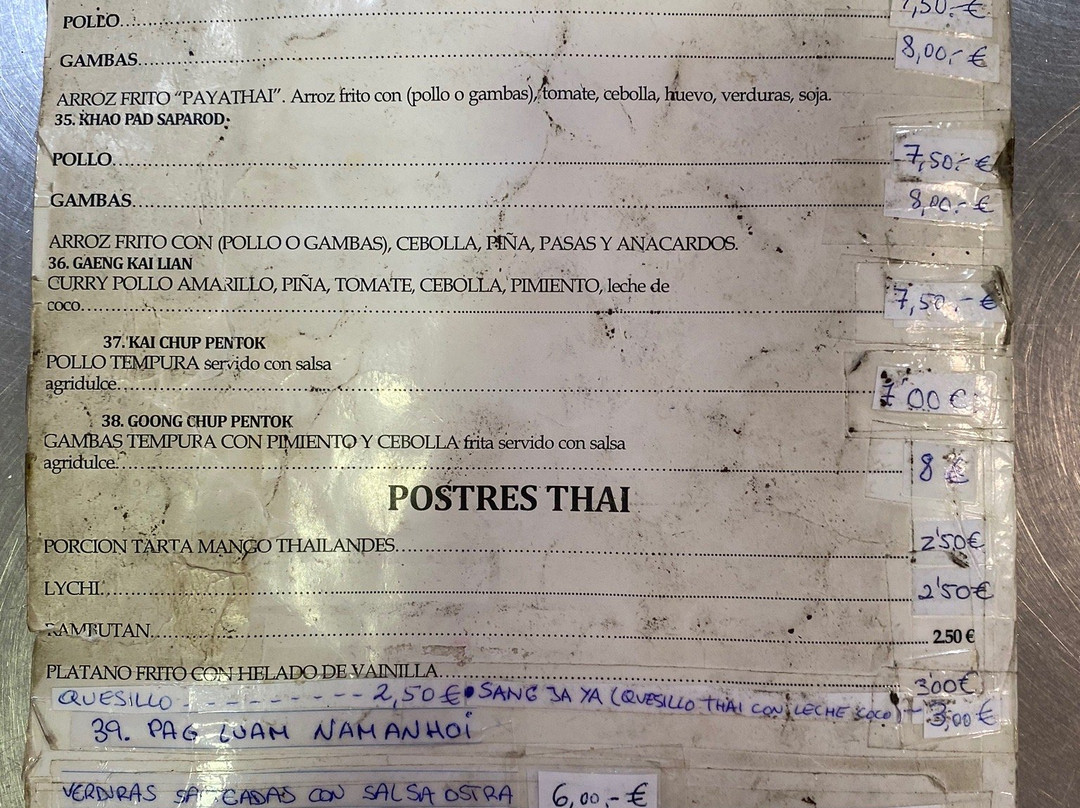 POLLO.......... 7,50.- €
GAMBAS.......... 8,00,- €
ARROZ FRITO “PAYATHAI”. Arroz frito con (pollo o gambas), tomate, cebolla, huevo, verduras, soja.
35. KHAO PAD SAPAROD.
POLLO.......... 7,50.- €
GAMBAS.......... 8,00.- €
ARROZ FRITO CON (POLLO O GAMBAS), CEBOLLA, PIÑA, PASAS Y ANACARDOS.
36. GAENG KAI LIAN
CURRY POLLO AMARILLO, PIÑA, TOMATE, CEBOLLA, PIMIENTO, leche de
coco.......... 7,50,- €
37. KAI CHUP PENTOK
POLLO TEMPURA servido con salsa
agridulce.......... 7'00 €
38. GOONG CHUP PENTOK
GAMBAS TEMPURA CON PIMIENTO Y CEBOLLA frita servido con salsa
agridulce.......... 8 €
POSTRES THAI
PORCION TARTA MANGO THAILANDES.......... 2'50€
LYCHI.......... 2'50€
RAMBUTAN.......... 2.50 €
PLATANO FRITO CON HELADO DE VAINILLA.......... 3'00€
QUESILLO - - - - - - - - - - 2,50 € • SANG 3A YA (QUESILLO THAI CON LECHE COCO) - 3,00 €
39. PAG LUAM NAMANHOI
VERDURAS CON SALSA OSTRA 6,00,- €